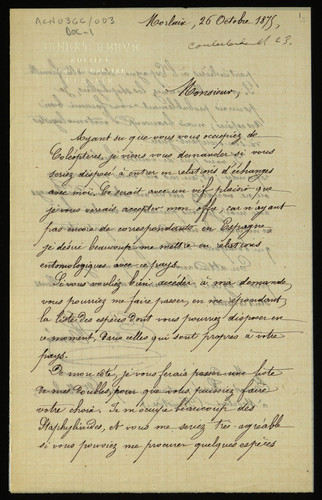 ACN036C/003
DOC-1
Morlaix, 26 Octobre 1875,
Monsieur,
Ayant su que vous vous occupiez de
Coléoptères, je viens vous demander si vous
seriez disposé à entrer en relations d'échanges
avec moi. Ce serait avec un vif plaisir que
je vous verais accepter mon offre, car n'ayant
pas moins de correspondants en Espagne
je désire beaucoup me mettre en relations
entomologiques avec ce pays.
Si vous vouliez bien accéder à ma demande
vous pourriez me faire passer, en me répondant,
la liste des espèces dont vous pourriez disposer en
ce moment, dans celles qui sont propres à votre
pays.
De mon côté, je vous ferais passer une liste
de mes doubles, pour que vous puissiez faire
votre choix. Je m'occupe beaucoup des
Staphylinides, et vous me seriez très-agréable
si vous pouviez me procurer quelques espèces